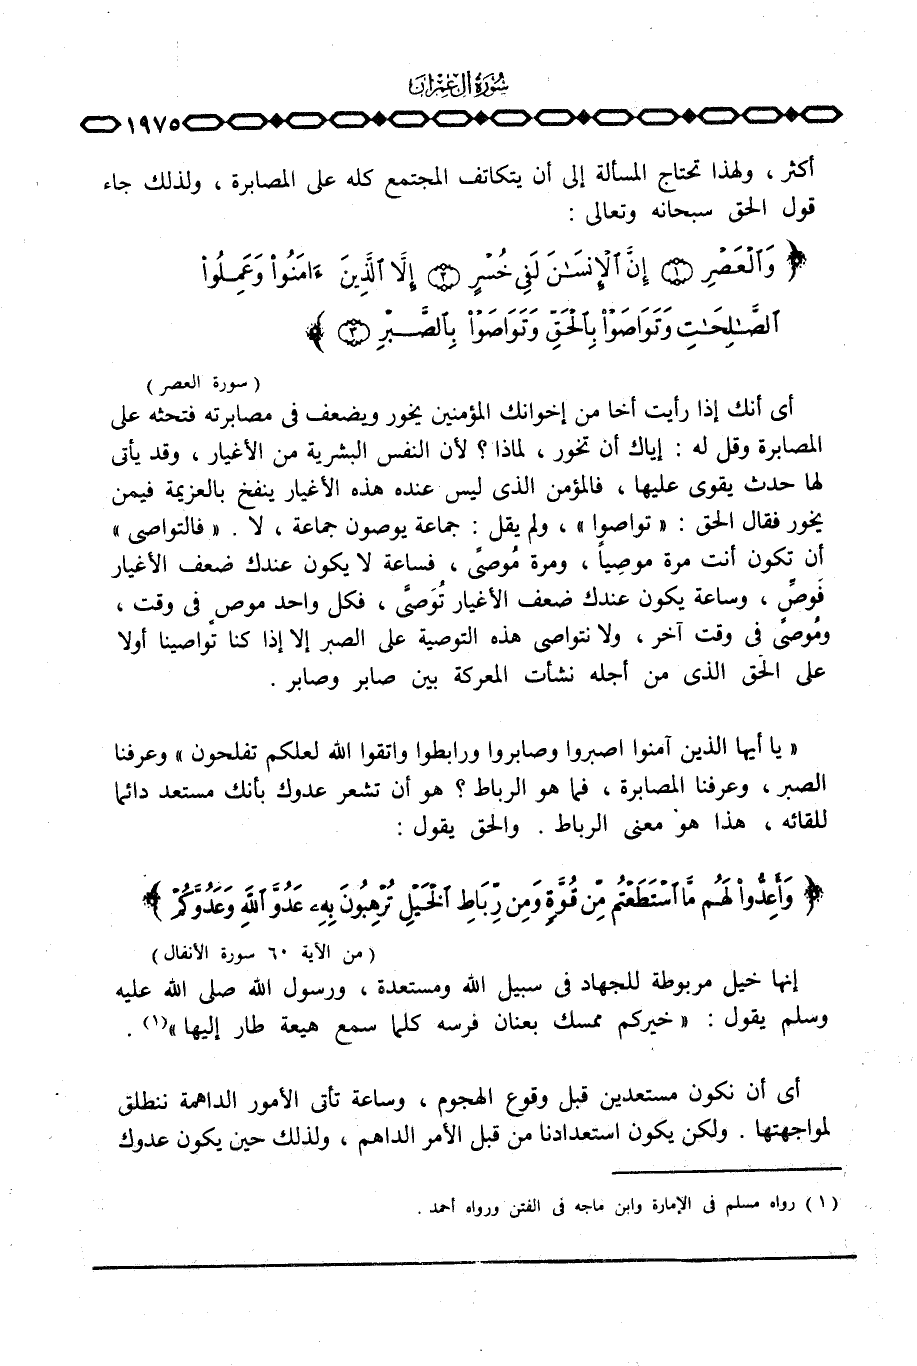 سورة آل عمران
١٩٧٥
أكثر ، ولهذا تحتاج المسألة إلى أن يتكاتف المجتمع كله على المصابرة ، ولذلك جاء
قول الحق سبحانه وتعالى :
﴿ وَٱلْعَصْرِ ۝١ إِنَّ ٱلْإِنسَـٰنَ لَفِى خُسْرٍ ۝٢ إِلَّا ٱلَّذِينَ ءَامَنُوا۟ وَعَمِلُوا۟
ٱلصَّـٰلِحَـٰتِ وَتَوَاصَوْا۟ بِٱلْحَقِّ وَتَوَاصَوْا۟ بِٱلصَّبْرِ ۝٣ ﴾
( سورة العصر )
أى أنك إذا رأيت أخا من إخوانك المؤمنين يخور ويضعف فى مصابرته فتحثه على
المصابرة وقل له : إياك أن تخور ، لماذا ؟ لأن النفس البشرية من الأغيار ، وقد يأتى
لها حدث يقوى عليها ، فالمؤمن الذى ليس عنده هذه الأغيار ينفخ بالعزيمة فيمن
يخور فقال الحق : « تواصوا » ، ولم يقل : جماعة يوصون جماعة ، لا . « فالتواصى »
أن تكون أنت مرة موصِياً ، ومرة مُوصىً ، فساعة لا يكون عندك ضعف الأغيار
فَوصِّ ، وساعة يكون عندك ضعف الأغيار تُوَصَّى ، فكل واحد موص فى وقت ،
ومُوصىً فى وقت آخر ، ولا نتواصى هذه التوصية على الصبر إلا إذا كنا تواصينا أولا
على الحق الذى من أجله نشأت المعركة بين صابر وصابر .
« يا أيها الذين آمنوا اصبروا وصابروا ورابطوا واتقوا الله لعلكم تفلحون » وعرفنا
الصبر ، وعرفنا المصابرة ، فما هو الرباط ؟ هو أن تشعر عدوك بأنك مستعد دائما
للقائه ، هذا هو معنى الرباط . والحق يقول :
﴿ وَأَعِدُّوا۟ لَهُم مَّا ٱسْتَطَعْتُم مِّن قُوَّةٍ وَمِن رِّبَاطِ ٱلْخَيْلِ تُرْهِبُونَ بِهِۦ عَدُوَّ ٱللَّهِ وَعَدُوَّكُمْ ﴾
( من الآية ٦٠ سورة الأنفال )
إنها خيل مربوطة للجهاد فى سبيل الله ومستعدة ، ورسول الله صلى الله عليه
وسلم يقول : « خيركم ممسك بعنان فرسه كلما سمع هيعة طار إليها »(١) .
أى أن نكون مستعدين قبل وقوع الهجوم ، وساعة تأتى الأمور الداهمة ننطلق
لمواجهتها . ولكن يكون استعدادنا من قبل الأمر الداهم ، ولذلك حين يكون عدوك
( ١ ) رواه مسلم فى الإمارة وابن ماجه فى الفتن ورواه أحمد .